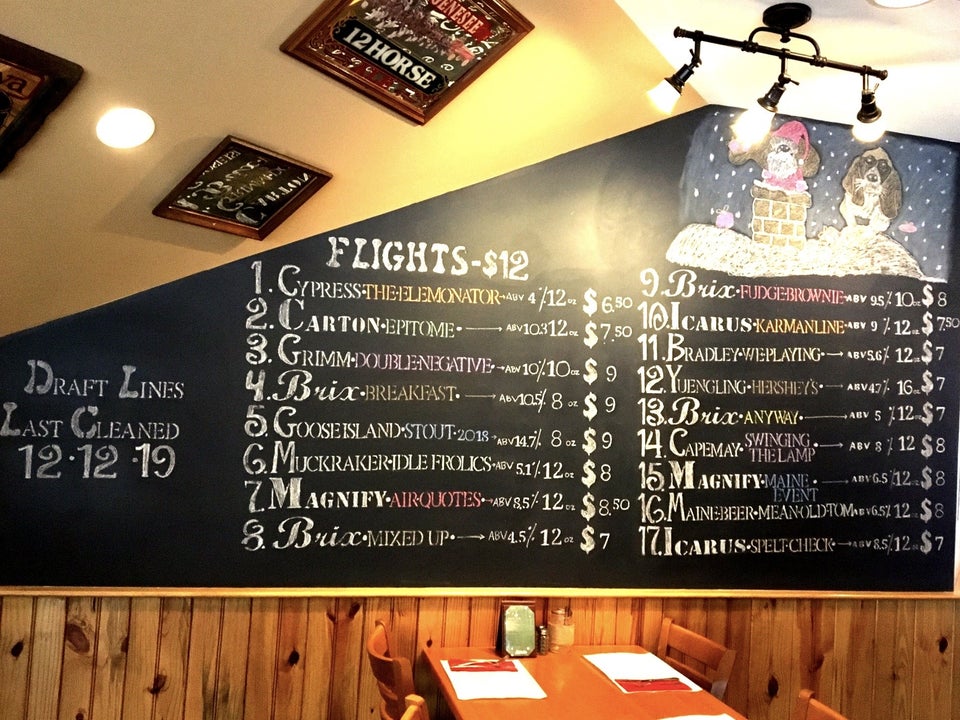 GENESEE
12 HORSE
FLIGHTS-$12
1. CYPRESS•THE•ELEMONATOR→ABV 4% 12oz $6.50
2. CARTON•EPITOME•→ABV10.3 12oz $7.50
3. GRIMM•DOUBLE•NEGATIVE•→ABV 10% 10oz $9
4. Brix•BREAKFAST.→ABV10.5% 8 oz $9
5. GOOSE ISLAND•STOUT•2018→ABV14.7% 8 oz $9
6. MUCKRAKER•IDLE FROLICS•ABV 5.1% 12oz $8
7. MAGNIFY•AIR•QUOTES•→ABV8.5% 12oz $8.50
8. Brix•MIXED UP•→ABV4.5% 12oz $7
9. Brix•FUDGE•BROWNIE→ABV 9.5% 10oz $8
10. ICARUS•KARMANLINE•ABV 9% 12oz $7.50
11. BRADLEY•WE•PLAYING•→ABV5.6% 12oz $7
12. YUENGLING•HERSHEY'S•→ABV4.7% 16oz $7
13. Brix•ANYWAY•→ABV 5% 12oz $7
14. CAPE MAY•SWINGING THE LAMP→ABV 8% 12 $8
15. MAGNIFY•MAINE EVENT•→ABV6.5% 12oz $8
16. MAINE•BEER•MEAN•OLD•TOM ABV6.5% 12oz $8
17. ICARUS•SPELT•CHECK•→ABV8.5% 12oz $7
DRAFT LINES
LAST CLEANED
12•12•19